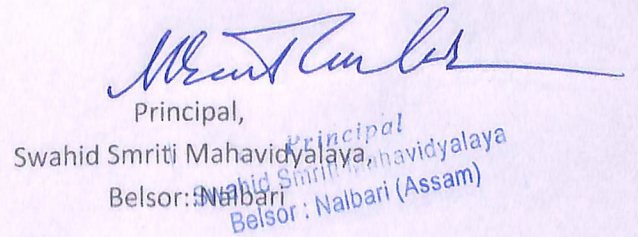 Principal,
Swahid Smriti Mahavidyalaya,
Belsor::Nalbari
Principal
Swahid Smriti Mahavidyalaya
Belsor : Nalbari (Assam)